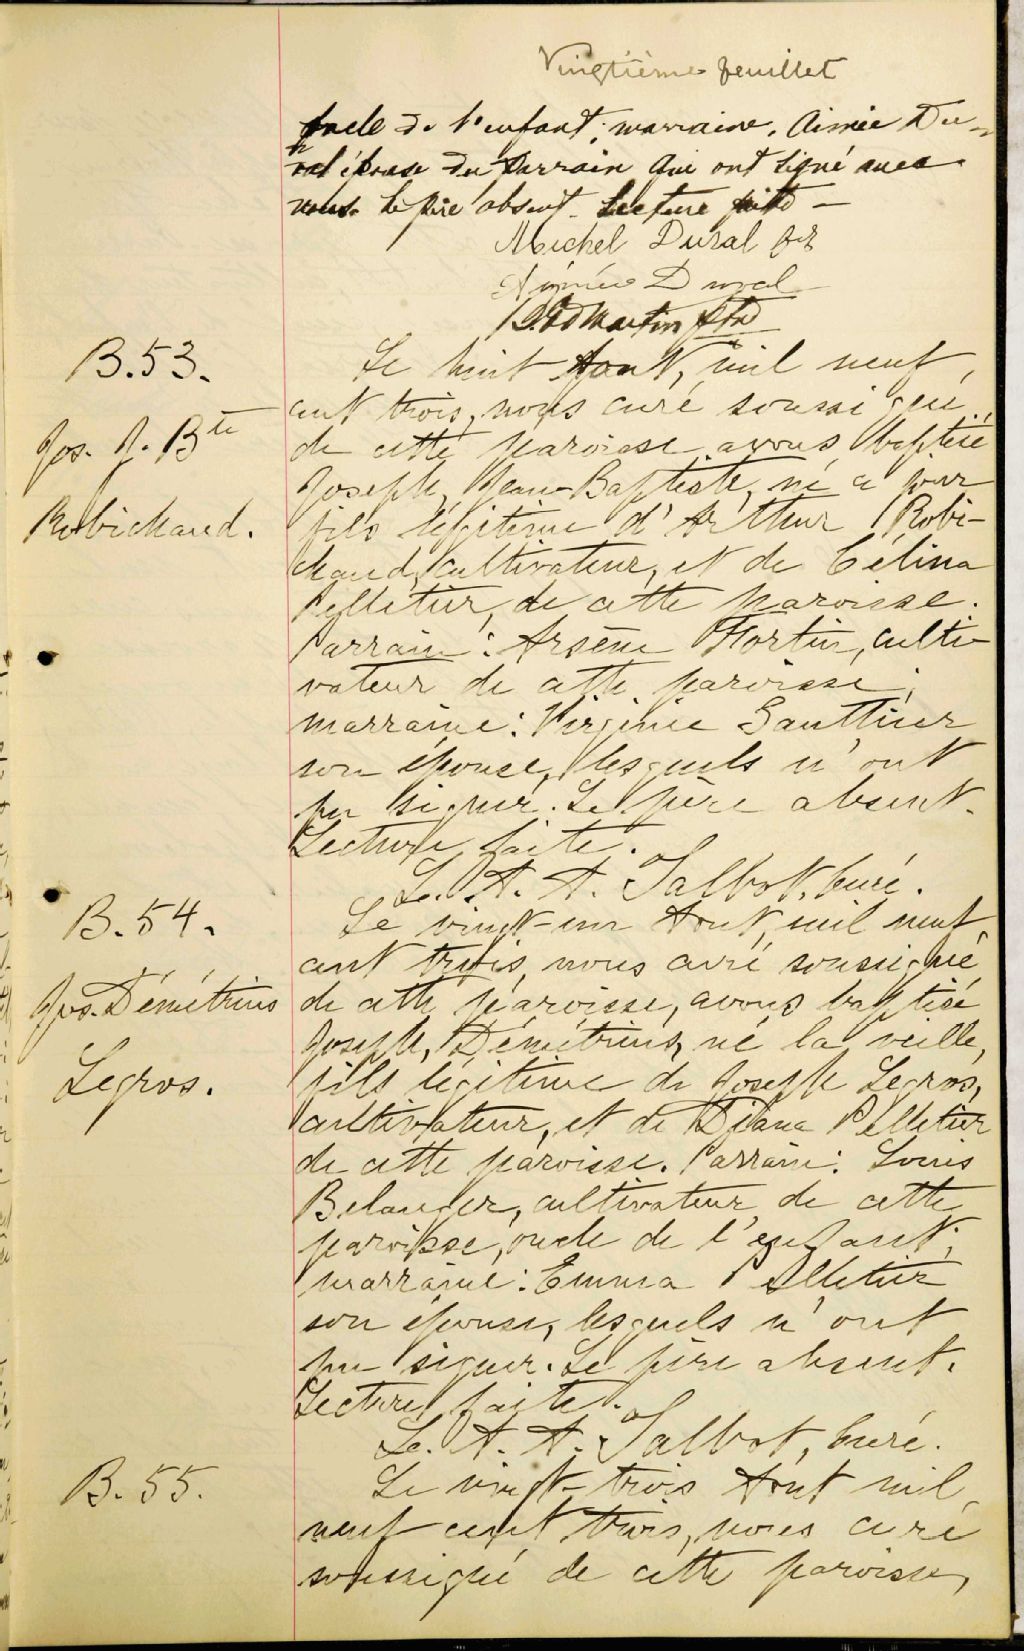 Vingtième feuillet
oncle de l'enfant; marraine, Aimée Du-
val épouse du parrain qui ont signé avec
nous. Le père absent. Lecture faite —
Michel Duval
Aimée Duval
Martin Ptre
B. 53.
Jos. J. Bte
Robichaud.
Le huit Aout, mil neuf
cent trois, nous curé soussigné
de cette paroisse avons baptisé
Joseph, Jean-Baptiste, né ce jour
fils légitime d'Arthur Robi-
chaud, cultivateur, et de Célina
Pelletier, de cette paroisse.
Parrain: Arsène Fortin, culti-
vateur de cette paroisse;
marraine: Virginie Gauthier
son épouse, lesquels n'ont
pu signer. Le père absent.
Lecture faite.
Ls. A. A. Talbot, Curé.
B. 54.
Jos. Démétrius
Legros.
Le vingt-un Aout, mil neuf
cent trois, nous curé soussigné
de cette paroisse, avons baptisé
Joseph, Démétrius, né la veille,
fils légitime de Joseph Legros,
cultivateur, et de Diana Pelletier
de cette paroisse. Parrain: Louis
Belanger, cultivateur de cette
paroisse, oncle de l'enfant;
marraine: Emma Pelletier
son épouse, lesquels n'ont
pu signer. Le père absent.
Lecture faite.
Ls. A. A. Talbot, Curé.
B. 55.
Le vingt-trois Aout mil
neuf cent trois, nous curé
soussigné de cette paroisse,